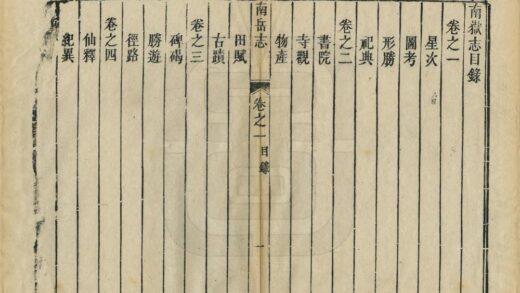 南嶽志目錄
卷之一
星次
圖考
形勝
祀典
卷之二
書院
寺觀
物產
南岳志
卷之一 目錄
一
田賦
古蹟
卷之三
碑碣
勝遊
徑路
卷之四
仙釋
紀異